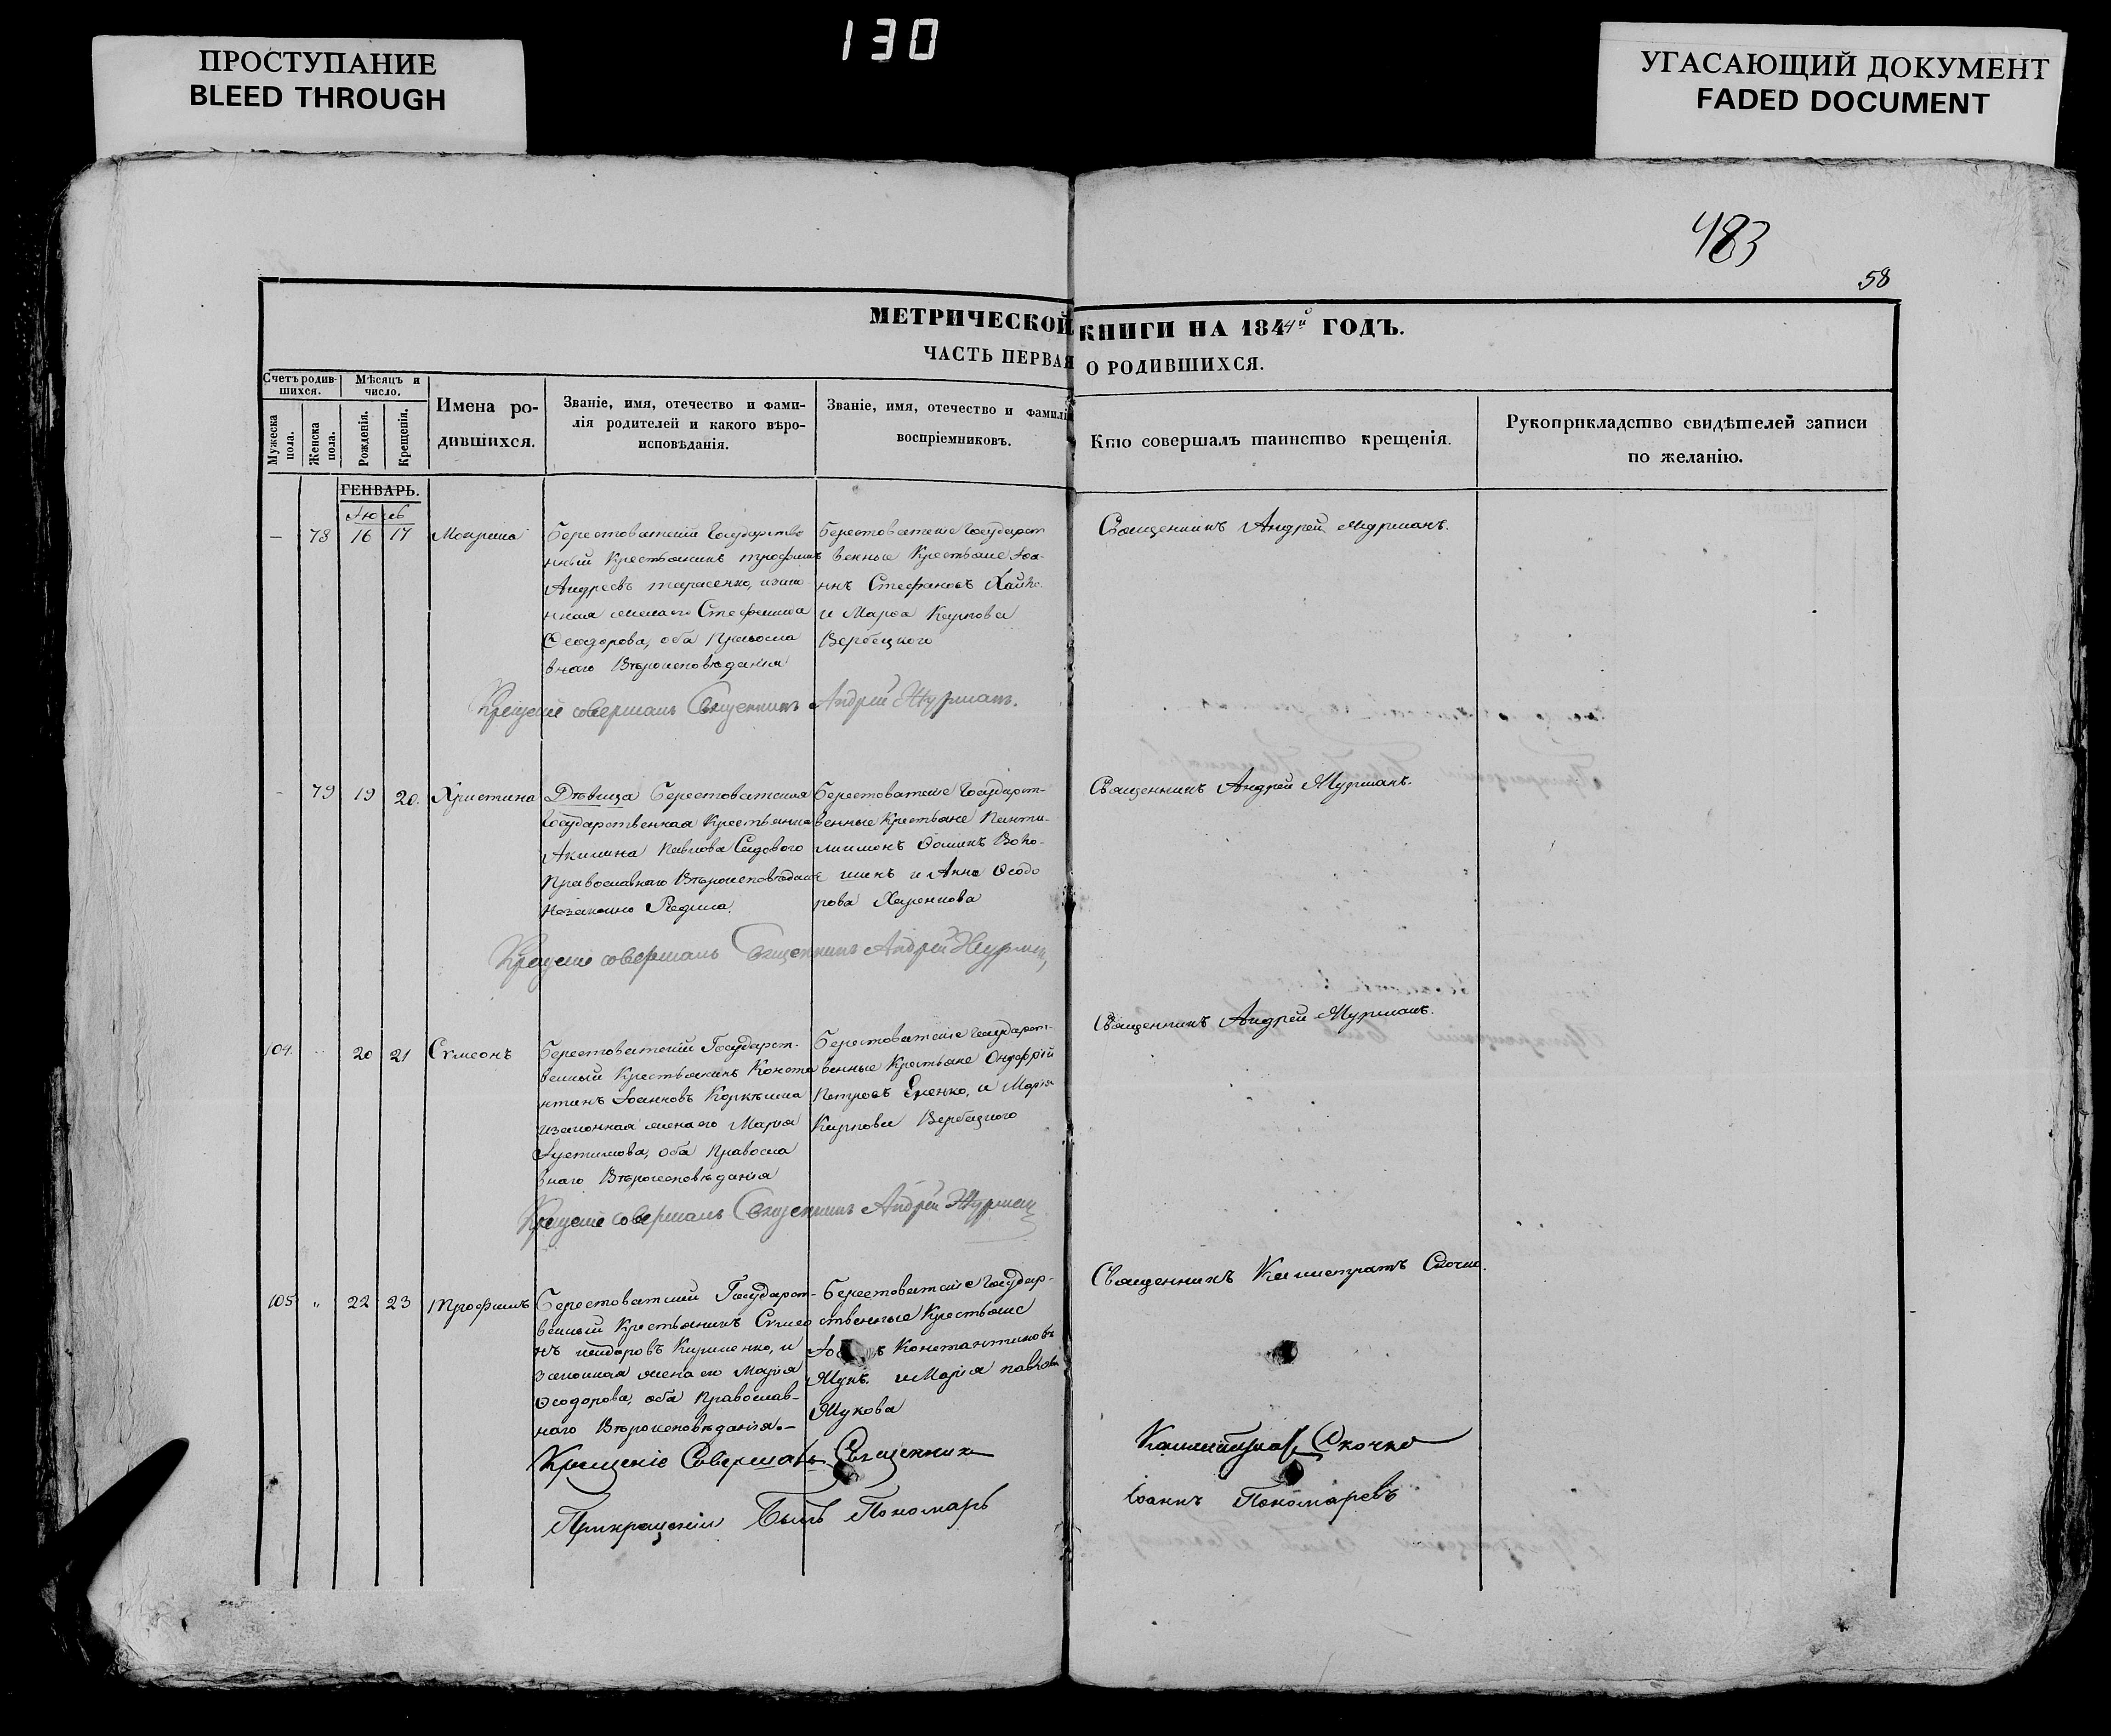 130
ПРОСТУПАНИЕ
BLEED THROUGH
УГАСАЮЩИЙ ДОКУМЕНТ
FADED DOCUMENT
483
58
МЕТРИЧЕСКОЙ КНИГИ НА 1844й ГОДЪ.
ЧАСТЬ ПЕРВАЯ О РОДИВШИХСЯ.
Счетъ родив-
шихся.
Мѣсяцъ и
число.
Мужеска
пола.
Женска
пола.
Рожденія.
Крещенія.
Имена ро-
дившихся.
Званіе, имя, отечество и фами-
лія родителей и какого вѣро-
исповѣданія.
Званіе, имя, отечество и фамилія
воспріемниковъ.
Кто совершалъ таинство крещенія.
Рукоприкладство свидѣтелей записи
по желанію.
ГЕНВАРЬ.
— 78 16 17
Берестоватскій Государстве
нный Крестьянинъ Трофимъ
Андреевъ Тарасенко, изако
нная жена его Стефанида
Ѳеодорова, оба Правосла
внаго Вѣроисповѣданія
Берестоватскіе Государст
венные Крестьяне Іоа-
ннъ Стефановъ
и Марѳа Карпова
Вербецкого
Священникъ Андрей
Крещеніе совершалъ Священникъ Андрей
- 79 19 20. Христина
Дѣвица Берестоватская
Государственная Крестьянка
Акилина Павлова Садового
Православнаго Вѣроисповѣданія
незаконно
Берестоватскіе Государст-
венные Крестьяне Панти-
лиимонъ Ѳоминъ
и Анна Ѳеодо
рова
Священникъ Андрей
Крещеніе совершалъ Священникъ Андрей
104. 20 21 Сѵмеонъ
Берестоватскій Государст-
венный Крестьянинъ Конста
нтинъ Іоанновъ
изаконная жена его Марія
Іустинова, оба Правосла
внаго Вѣроисповѣданія
Берестоватскіе Государст-
венные Крестьяне Онуфрій
Петровъ Еренко, и Марѳа
Карпова Вербецкого
Священникъ Андрей
Крещеніе совершалъ Священникъ Андрей
105 " 22 23 Трофимъ
Берестоватскій Государст-
венный Крестьянинъ Сѵмео
нъ Кириленко, и
законная жена его Марія
Ѳеодорова, оба Православ-
наго Вѣроисповѣданія.—
Берестоватскіе Государ-
ственные Крестьяне
Константиновъ
Жукъ. и Марія Павлова
Жукова
Священникъ Калистратъ Скочко.
Крещеніе Совершалъ Священникъ
Скочко
При крещеніи былъ Пономарь
Іоаннъ Пономаревъ